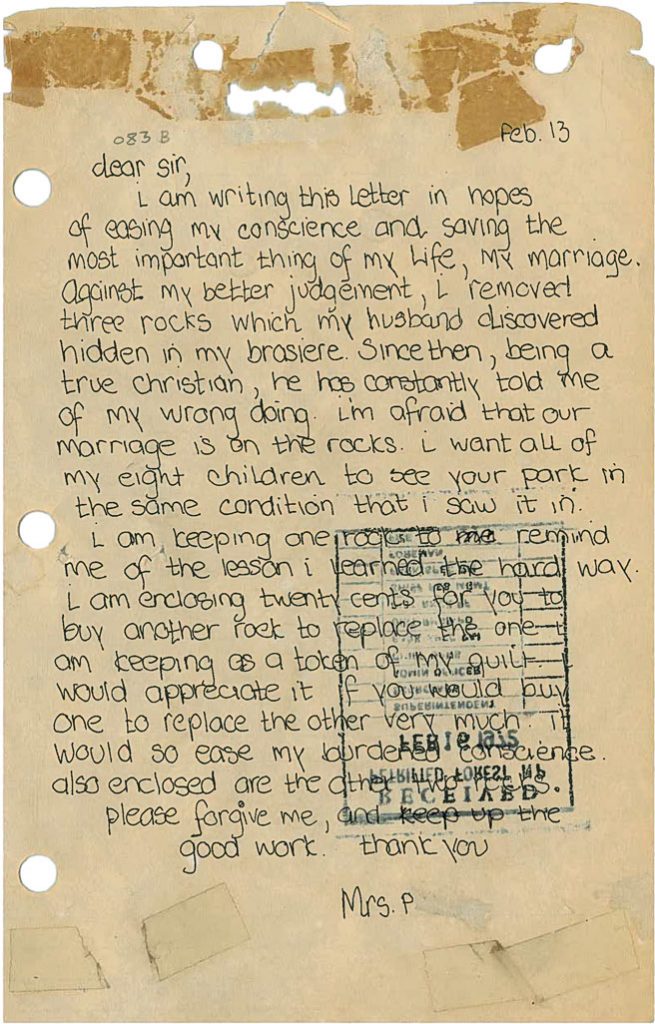 083 B
Feb. 13
dear sir,
i am writing this letter in hopes
of easing my conscience and saving the
most important thing of my life, my marriage.
Against my better judgement, i removed
three rocks which my husband discovered
hidden in my brasiere. Since then, being a
true christian, he has constantly told me
of my wrong doing. i'm afraid that our
marriage is on the rocks. i want all of
my eight children to see your park in
the same condition that i saw it in.
i am keeping one rock to me remind
me of the lesson i learned the hard way.
i am enclosing twenty cents for you to
buy another rock to replace the one i
am keeping as a token of my guilt. i
would appreciate it if you would buy
one to replace the other very much. it
would so ease my burdened conscience.
also enclosed are the other two rocks.
please forgive me, and keep up the
good work. thank you
Mrs. P
SUPERINTENDENT
FEB 18 1975
PETRIFIED FOREST NP
RECEIVED